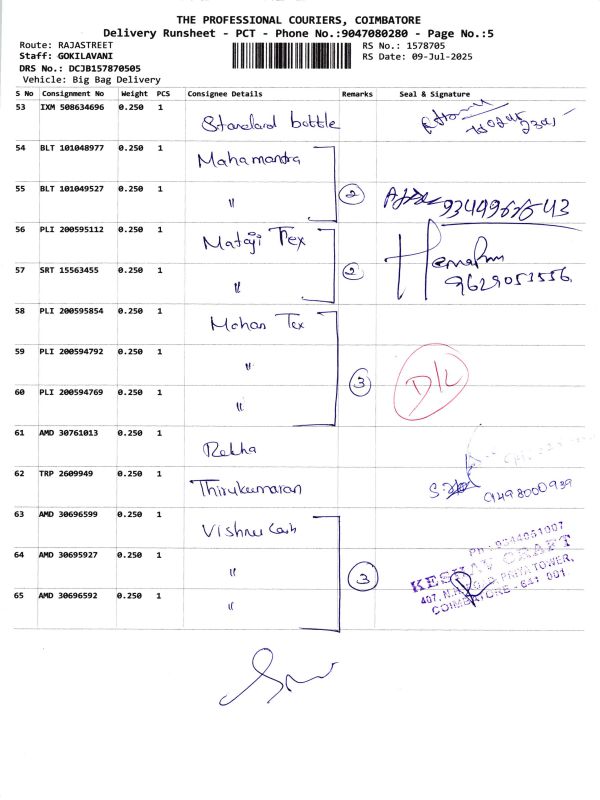 THE PROFESSIONAL COURIERS, COIMBATORE
Delivery Runsheet - PCT - Phone No.:9047080280 - Page No.:5
Route: RAJASTREET
RS No.: 1578705
Staff: GOKILAVANI
RS Date: 09-Jul-2025
DRS No.: DCJB157870505
Vehicle: Big Bag Delivery
S No Consignment No Weight PCS Consignee Details Remarks Seal & Signature
53 IXM 508634696 0.250 1 Standard bottle
54 BLT 101048977 0.250 1 Mahamandra
55 BLT 101049527 0.250 1 〃 2
56 PLI 200595112 0.250 1 Mataji Tex
57 SRT 15563455 0.250 1 〃 2 9629053556
58 PLI 200595854 0.250 1 Mohan Tex
59 PLI 200594792 0.250 1 〃
60 PLI 200594769 0.250 1 〃 3 D/L
61 AMD 30761013 0.250 1 Rekha
62 TRP 2609949 0.250 1 Thirukumaran 9498000939
63 AMD 30696599 0.250 1 Vishnu
64 AMD 30695927 0.250 1 〃 3
65 AMD 30696592 0.250 1 〃
KESHAV CRAFT
COIMBATORE - 641 001